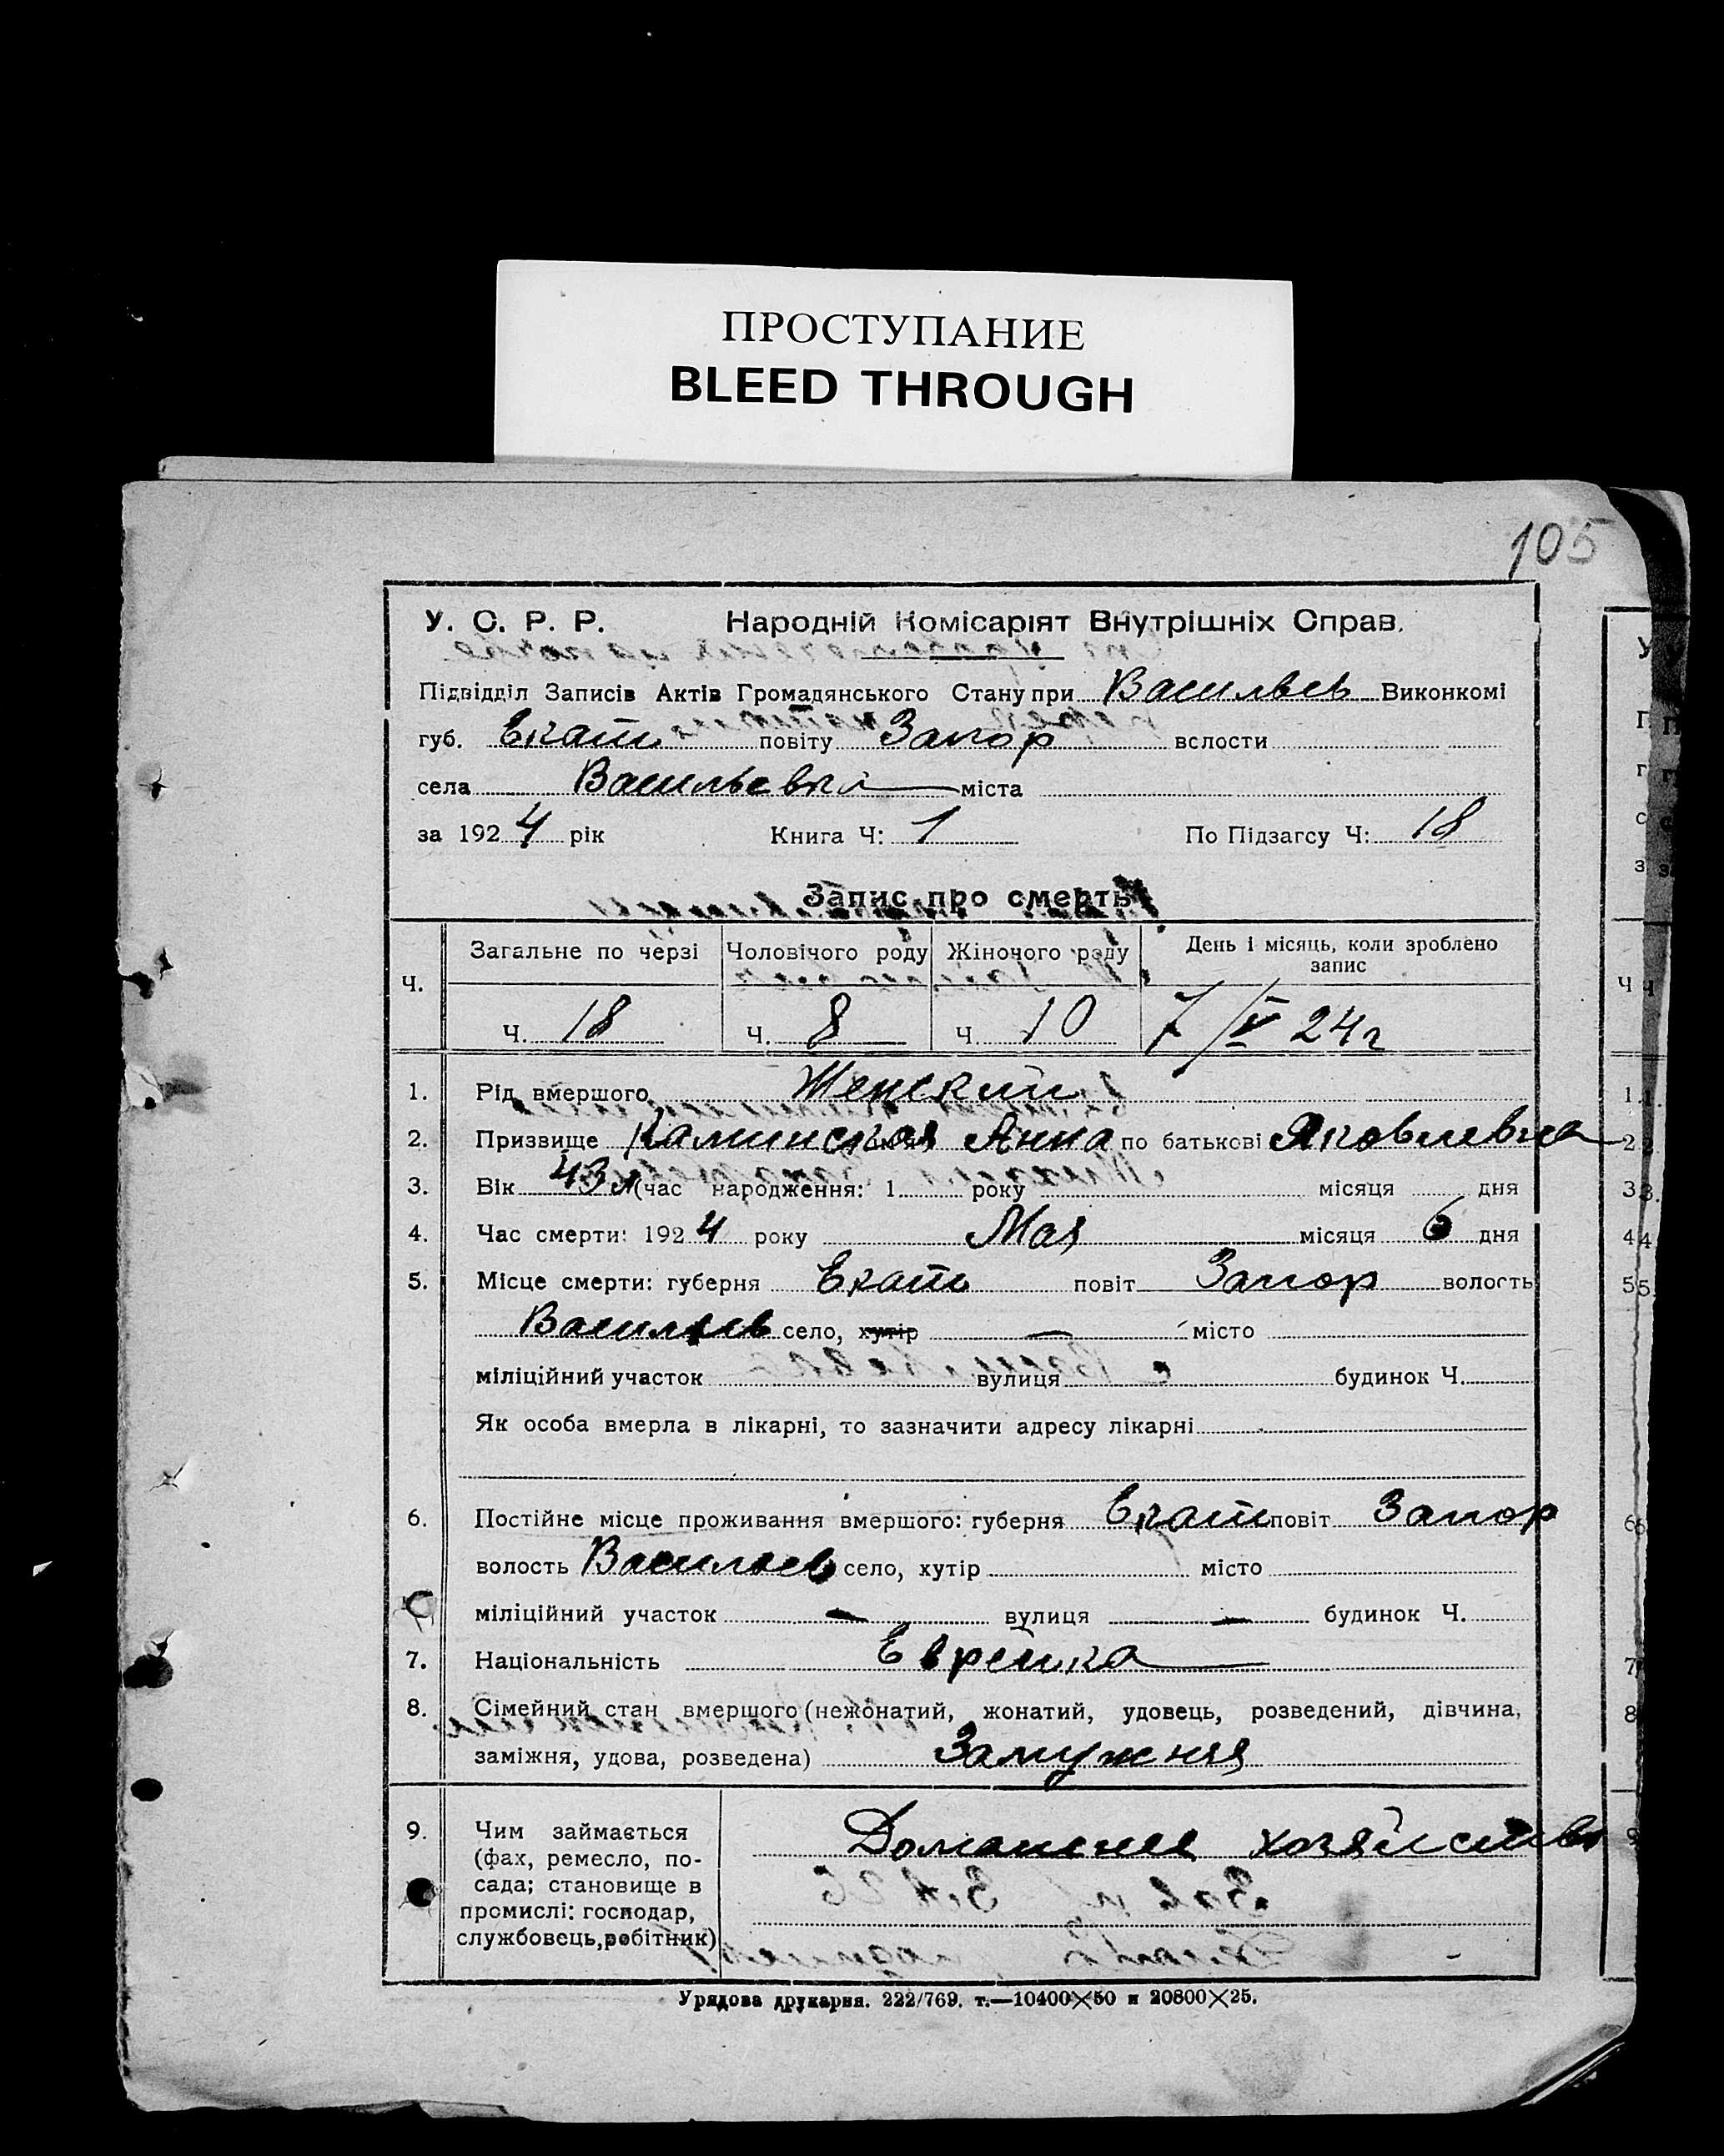 ПРОСТУПАНИЕ
BLEED THROUGH
105
У. С. Р. Р. Народній Комісаріят Внутрішніх Справ.
Підвідділ Записів Актів Громадянського Стану при Васильев Виконкомі
губ. Екат повіту Запор вслости
села Васильевка міста
за 1924 рік Книга Ч: 1 По Підзагсу Ч: 18
Запис про смерть
Ч. Загальне по черзі Чоловічого роду Жіночого роду День і місяць, коли зроблено запис
Ч. 18 Ч. 8 Ч. 10 7/V 24 г
1. Рід вмершого Женский
2. Призвище Каминская Анна по батькові Яковлевна
3. Вік 43 л (час народження: 1 року місяця дня
4. Час смерти: 1924 року Мая місяця 6 дня
5. Місце смерти: губерня Екат повіт Запор волость
Васильев село, хутір — місто
міліційний участок вулиця будинок Ч.
Як особа вмерла в лікарні, то зазначити адресу лікарні
6. Постійне місце проживання вмершого: губерня Екат повіт Запор
волость Васильев село, хутір місто
міліційний участок — вулиця — будинок Ч.
7. Національність Еврейка
8. Сімейний стан вмершого (нежонатий, жонатий, удовець, розведений, дівчина,
заміжня, удова, розведена) Замужняя
9. Чим займається Домашнее хозяйство
(фах, ремесло, по-
сада; становище в
промислі: господар,
службовець, робітник)
Урядова друкарня. 222/769. т.—10400×50 и 20800×25.